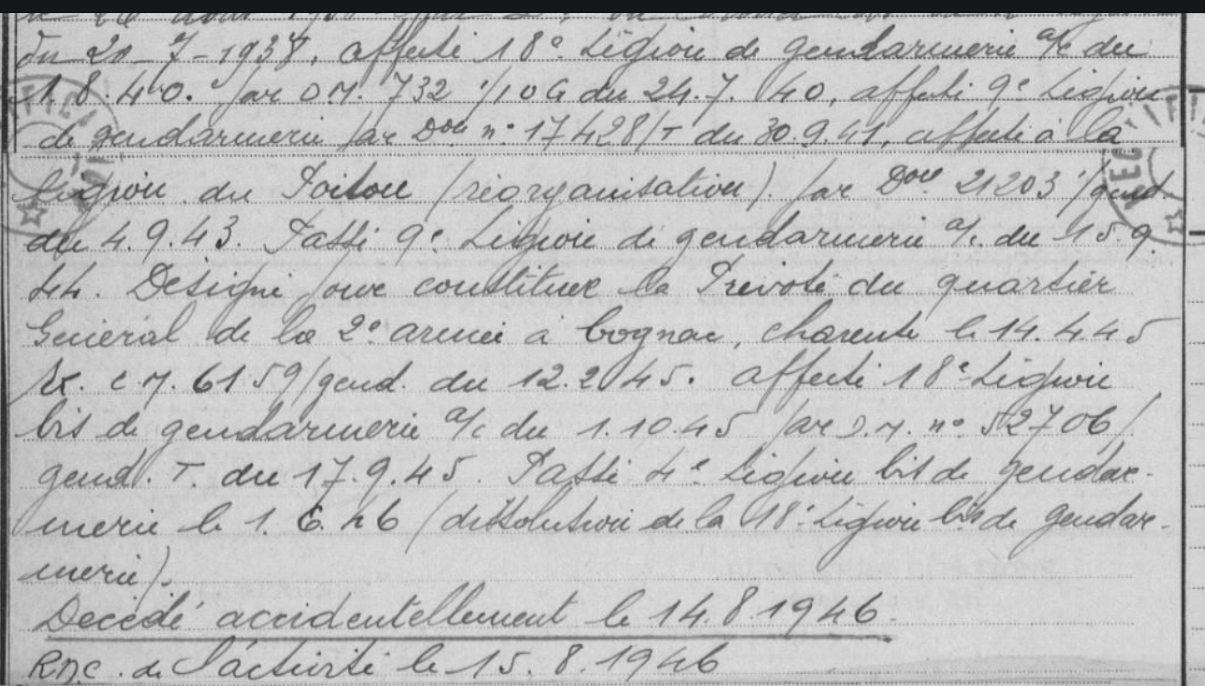 du 20-7-1938, affecté 18e Légion de gendarmerie a/c du
1.8.40. par D.M. 732 1/10G du 24.7.40, affecté 9e Légion
de gendarmerie par Don n° 17428/T du 30.9.41, affecté à la
Légion du Poitou (réorganisation) par Don 21203/gend.
du 4.9.43. Passé 9e Légion de gendarmerie a/c. du 15.9.
44. Désigné pour constituer la Prévoté du quartier
Général de la 2e armée à Cognac, Charente le 14.4.45
C.M. 6159/gend. du 12.2.45. affecté 18e Légion
bis de gendarmerie a/c du 1.10.45 par D.M. n° 52706/
gend. T. du 17.9.45. Passé 4e Légion bis de gendar-
merie le 1.6.46 (dissolution de la 18e Légion bis de gendar-
merie).
Décédé accidentellement le 14.8.1946.
de l'activité le 15.8.1946